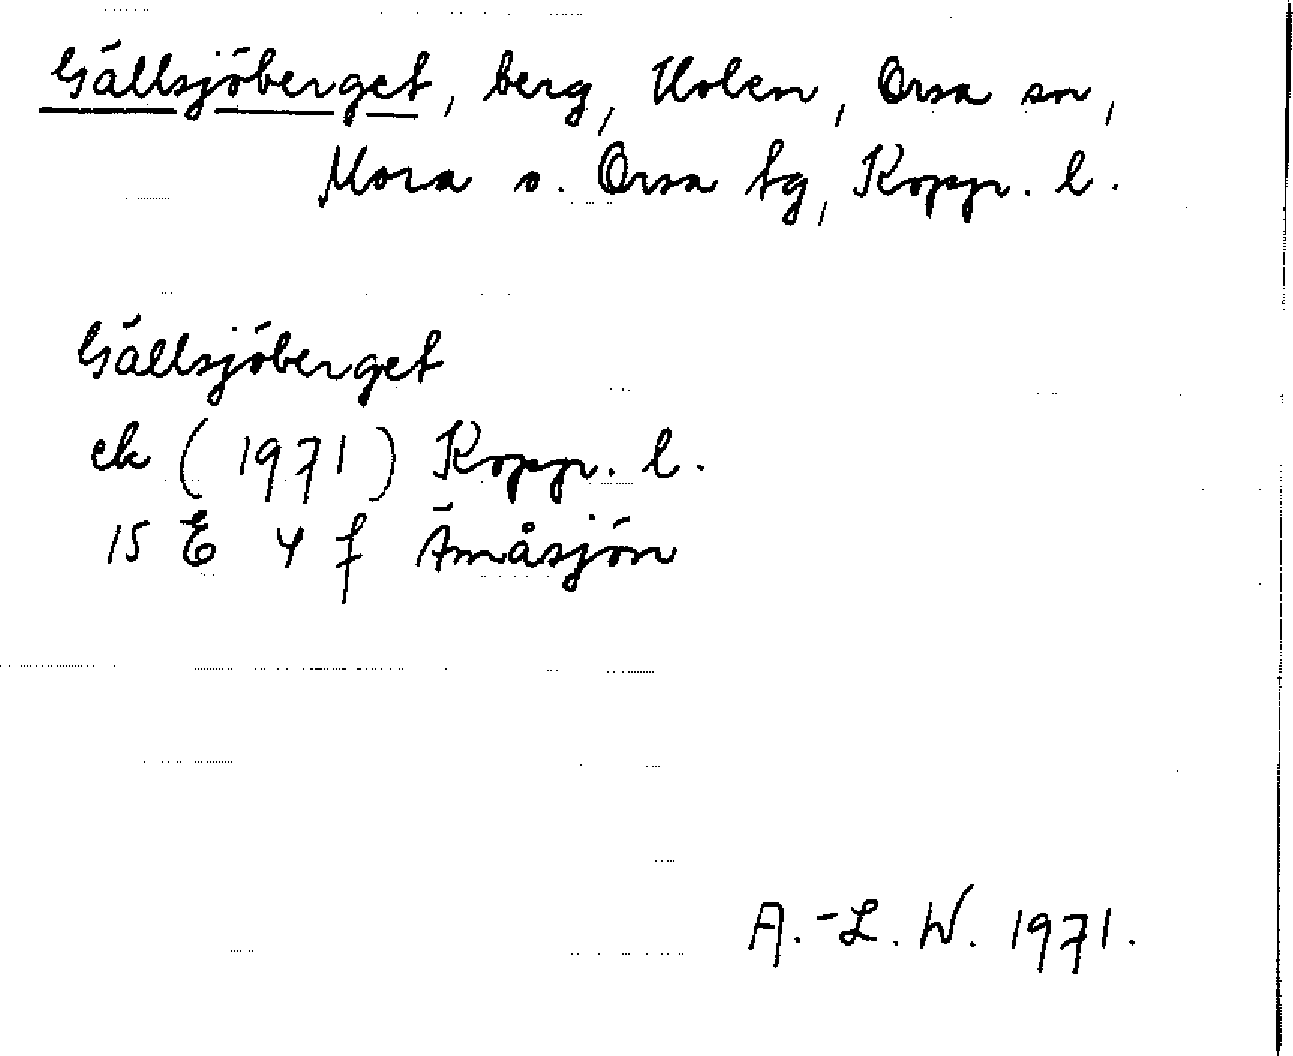 Gällsjöberget, berg, Holen, Orsa sn,
Mora o. Orsa tg, Kopp. l.
Gällsjöberget
ek (1971) Kopp. l.
15 E 4 f Ämåsjön
A.-L. W. 1971.